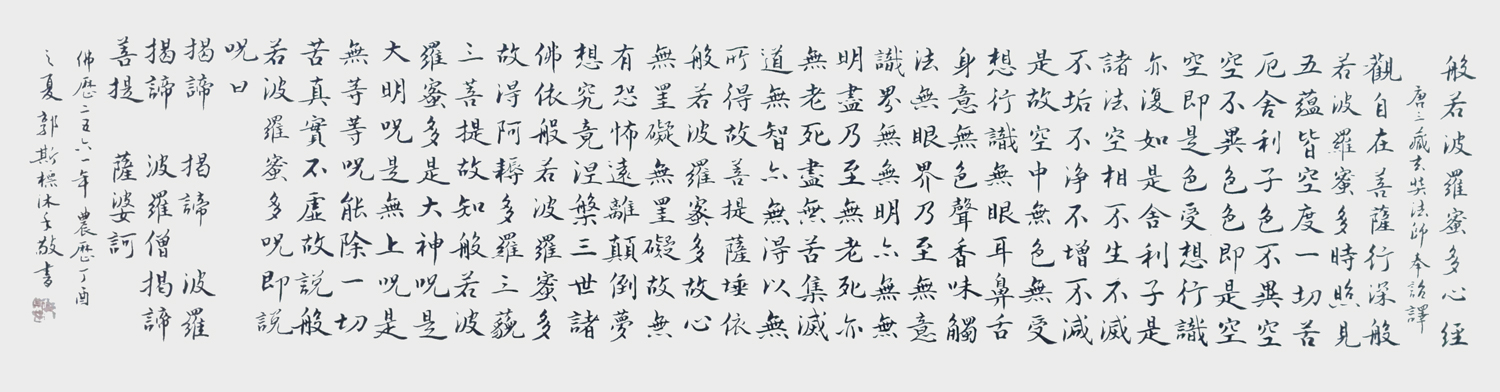 般若波羅蜜多心經
唐三藏玄奘法師奉詔譯
觀自在菩薩行深般
若波羅蜜多時照見
五蘊皆空度一切苦
厄舍利子色不異空
空不異色色即是空
空即是色受想行識
亦復如是舍利子是
諸法空相不生不滅
不垢不淨不增不減
是故空中無色無受
想行識無眼耳鼻舌
身意無色聲香味觸
法無眼界乃至無意
識界無無明亦無無
明盡乃至無老死亦
無老死盡無苦集滅
道無智亦無得以無
所得故菩提薩埵依
般若波羅蜜多故心
無罣礙無罣礙故無
有恐怖遠離顛倒夢
想究竟涅槃三世諸
佛依般若波羅蜜多
故得阿耨多羅三藐
三菩提故知般若波
羅蜜多是大神呪是
大明呪是無上呪是
無等等呪能除一切
苦真實不虛故說般
若波羅蜜多呪即說
呪曰
揭諦 揭諦 波羅
揭諦 波羅僧揭諦
菩提 薩婆訶
佛歷二五六一年 農歷丁酉
之夏郭斯標沐手敬書